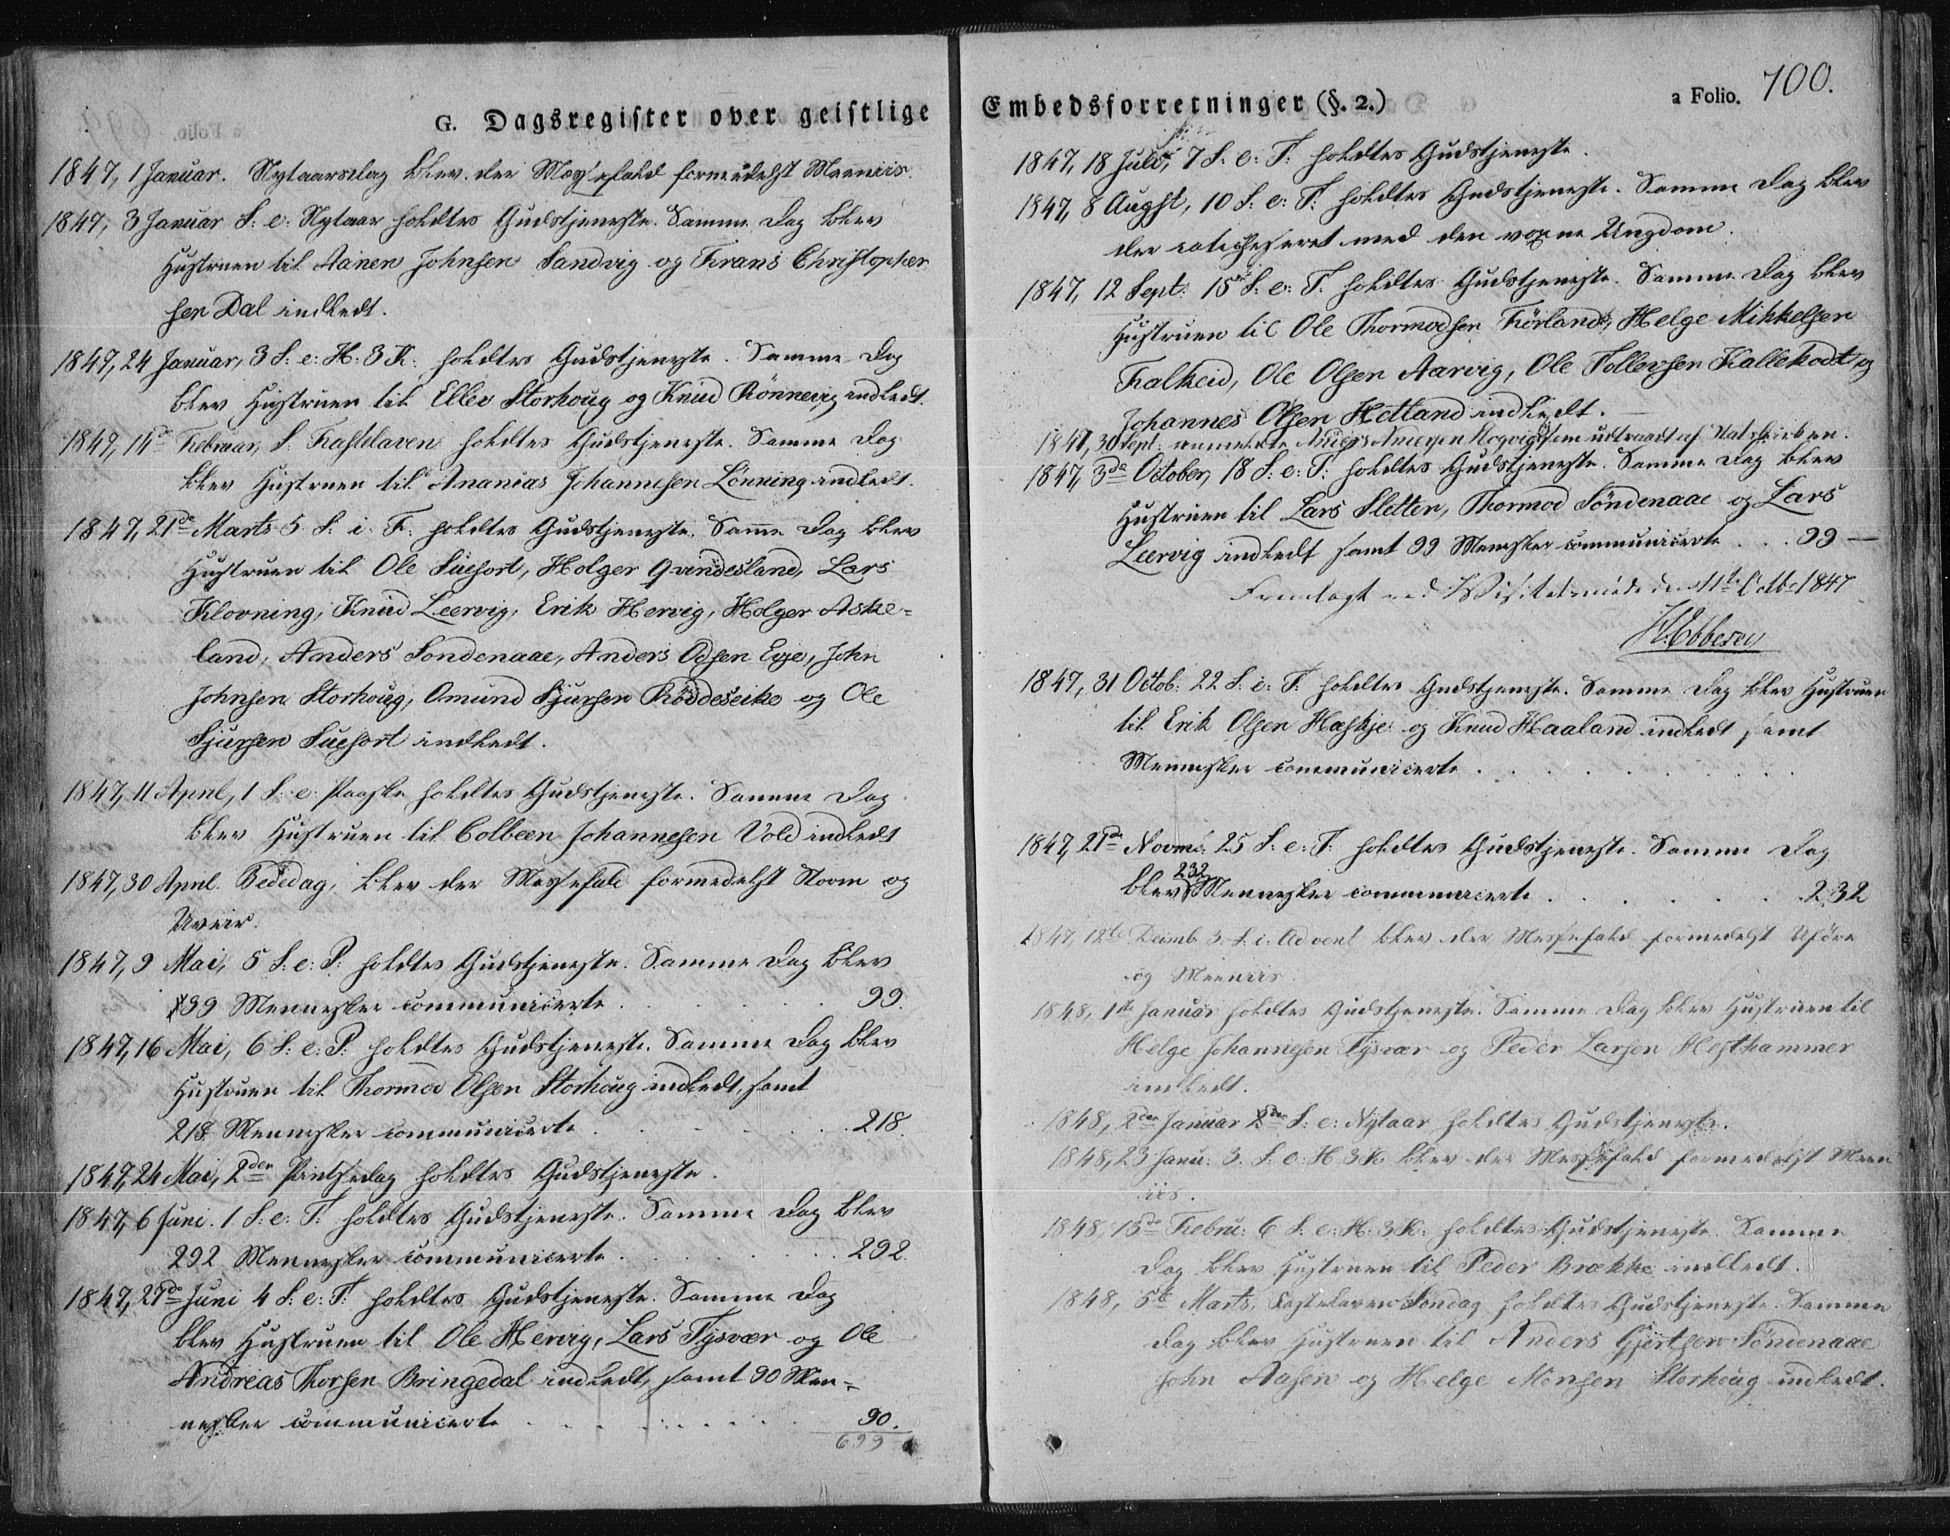 G. Dagsregister over geistlige
1847, 1 Januar. Nytaarsdag blev der Messefald formedelst Meeniis.
1847, 3 Januar S. e. Nytaar holdtes Gudstjeneste. Samme Dag blev
Hustruen til Aanen Johnsen Sandvig og Frans Christopher
sen Dal indledt.
1847, 24 Januar, 3 S. e. H. 3 K. holdtes Gudstjeneste. Samme Dag
blev Hustruen til Ellev Storhoug og Knud Rönnevig indledt.
1847, 14de Februar, S. Fastelaven holdtes Gudstjeneste. Samme Dag
blev Hustruen til Ananias Johannesen Lönning indledt.
1847, 21de Marts 5 S. i. F. holdtes Gudstjeneste. Samme Dag blev
Hustruen til Ole Suesort, Holger Qvindesland, Lars
Klovning, Knud Leervig, Erik Hervig, Holger Aske-
land, Anders Sondenaae, Anders Odsen Ege, John
Johnsen Storhoug, Omund Sjursen Röddeseike og Ole
Sjursen Suesort indledt.
1847, 11 April, 1 S. e. Paaske holdtes Gudstjeneste. Samme Dag
blev Hustruen til Colbeen Johannesen Vold indledt
1847, 30 April. Bededag, blev der Messefald formedelst Storm og
Uveir.
1847, 9 Mai, 5 S. e. P. holdtes Gudstjeneste. Samme Dag blev
99 Mennesker communicerte . . . 99.
1847, 16 Mai, 6 S. e. P. holdtes Gudstjeneste. Samme Dag blev
Hustruen til Thormod Olsen Storhoug indledt, samt
218 Mennesker communicerte . . . 218.
1847, 24 Mai, 2den Pintsedag holdtes Gudstjeneste.
1847, 6 Juni. 1 S. e. T. holdtes Gudstjeneste. Samme Dag blev
292 Mennesker communicerte . . . 292.
1847, 27de Juni 4 S. e. T. holdtes Gudstjeneste. Samme Dag
blev Hustruen til Ole Hervig, Lars Tysvær og Ole
Andreas Thorsen Bringedal indledt, samt 90 Men-
nesker communicerte . . . 90.
699
Embedsforretninger (§. 2.)
a Folio. 100.
1847, 18 Juli, 7 S. e. T. holdtes Gudstjeneste.
1847, 8 August, 10 S. e. T. holdtes Gudstjeneste. Samme Dag blev
der catechiseret med den voxne Ungdom.
1847, 12 Sept. 15 S. e. T. holdtes Gudstjeneste. Samme Dag blev
Hustruen til Ole Thormodsen Förland, Helge Mikkelsen
Falkeid, Ole Olsen Aarvig, Ole Tollevsen Kallekodt og
Johannes Olsen Hetland indledt.
1847, 30 Sept. anmeldte som udtraadt af Statskirken.
1847, 3de October, 18 S. e. T. holdtes Gudstjeneste. Samme Dag blev
Hustruen til Lars Sletten, Thormod Söndenaae og Lars
Leervig indledt samt 99 Mennesker communicerte . . . 99 —
Fremlagt ved Visitatsmöde den 11te Octbr 1847
Ebbesen
1847, 31 Octob. 22 S. e. T. holdtes Gudstjeneste. Samme Dag blev Hustruen
til Erik Olsen Haskje og Knud Haaland indledt samt
Mennesker communicerte . . .
1847, 21de Novm. 25 S. e. T. holdtes Gudstjeneste. Samme Dag
blev 232 Mennesker communicerte . . . 232
1847, 12te Decmb. 3 S. i. Advent blev der Messefald formedelst Uföre
og Meeniis.
1848, 1ste Januar holdtes Gudstjeneste. Samme Dag blev Hustruen til
Helge Johannesen Tysvær og Peder Larsen Hesthammer
indledt.
1848, 2den Januar S. e. Nytaar holdtes Gudstjeneste.
1848, 23 Janu. 3. S. e. H 3 K blev der Messefald formedelst Meen
iis.
1848, 13de Febru. 6 S. e. H. 3 K. holdtes Gudstjeneste. Samme
Dag blev Hustruen til Peder Brække indledt.
1848, 5te Marts. Fastelaven Söndag holdtes Gudstjeneste. Samme
Dag blev Hustruen til Anders Gjertsen Söndenaae
John Aasen og Helge Monsen Storhoug indledt.